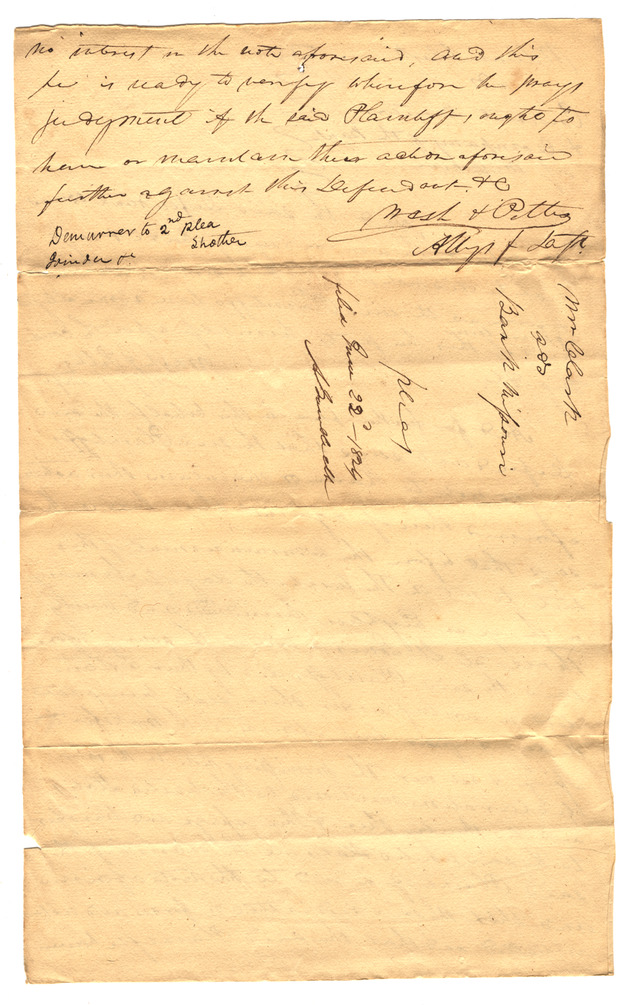 no interest in the note aforesaid, and this
he is ready to verify wherefore he prays
judgment if the said Plaintiff, ought to
have or maintain their action aforesaid
further against this Defendant. &c
Wash &
Attys f Deft.
Demurrer to 2nd plea
Joinder &c
Wm Clark
ads
Bank Misouri
pleas
filed June 22d - 1824